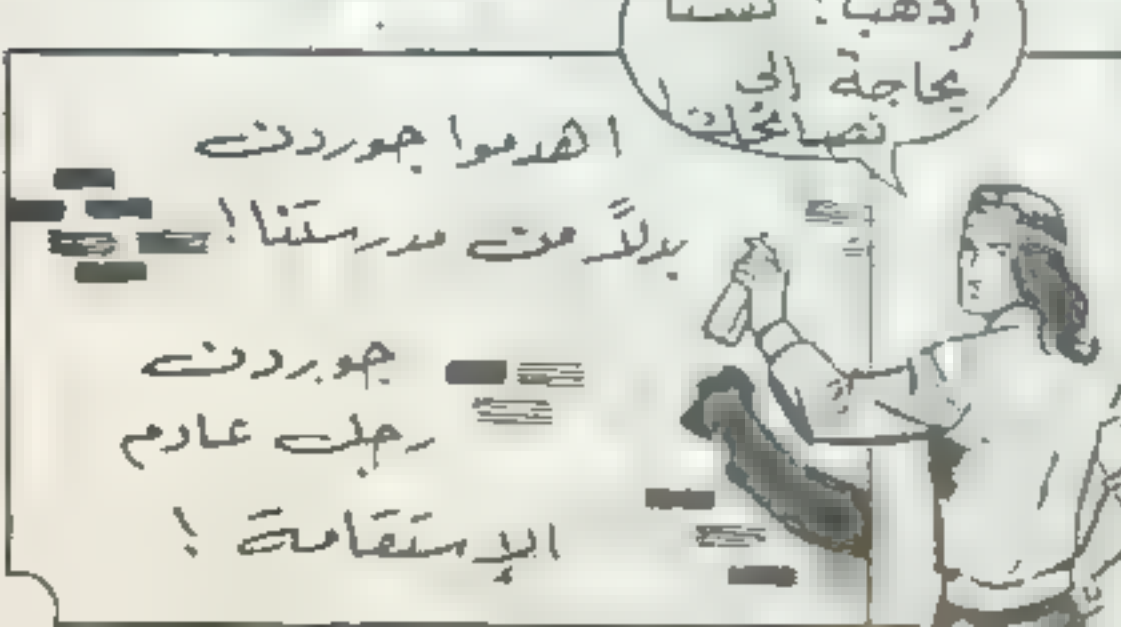 إذهب! لسنا
بحاجة إلى
نصائحك
اهدموا جوردن
بدلاً من مدرستنا!
جوردن
رجل عادم
الإستقامة!